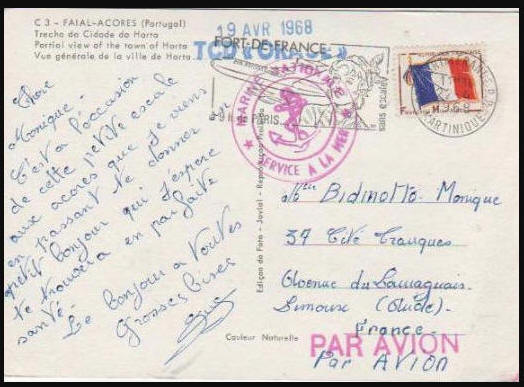 C 3 - FAIAL-ACORES (Portugal)
Trecho da Cidade da Horta
Partial view of the town of Horta
Vue générale de la ville de Horta
19 AVR 1968
TCD « ORAGE »
FORT-DE-FRANCE
PARIS
sans escale
MARINE NATIONALE
SERVICE A LA MER
MARTINIQUE
1968
Chère
Monique.
C'est à l'occasion
de cette petite escale
aux acores que je viens
en passant te donner un
petit bonjour qui j'espère
te trouvera en parfaite
santé.
Le bonjour a toutes
Grosses bises
Edição da Foto - Jovial -
Couleur Naturelle
Mlle Bidinotto. Monique
37 Cité
Avenue du
Limouse (Aude).
France.
PAR AVION
Par AVION